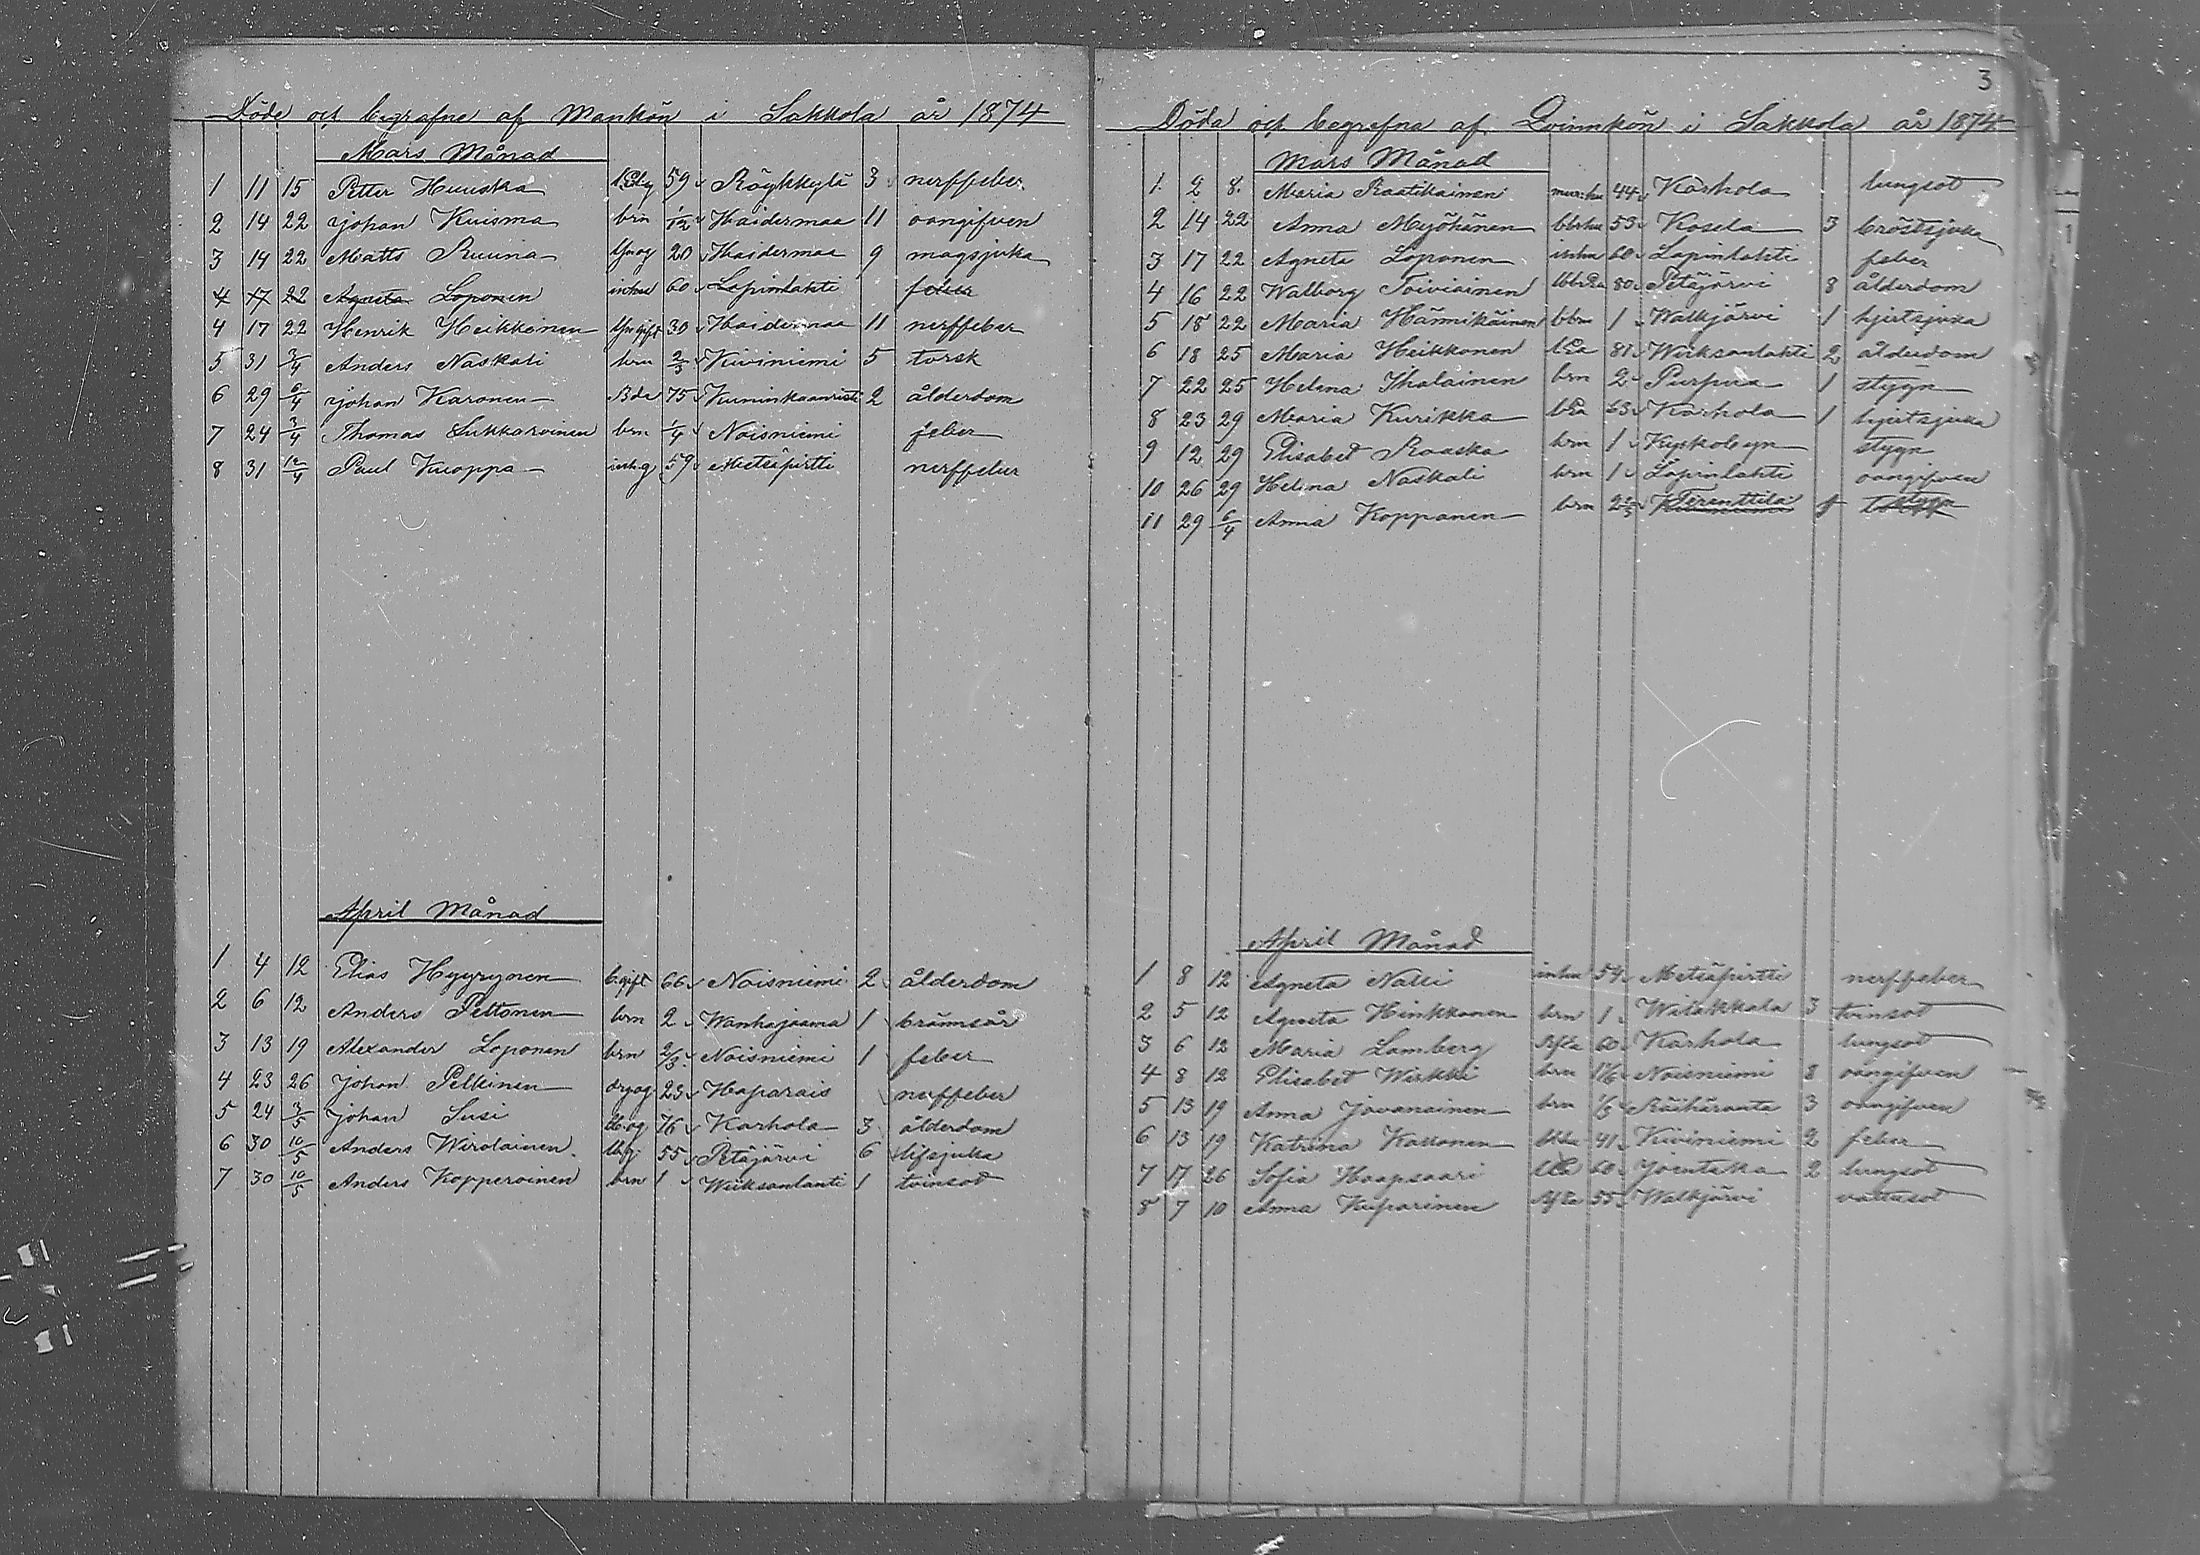 Döde och begrafne af Mankön i Sakkola år 1874
Mars Månad
1 11 15 Petter Huuska 59 Röykkylä 3 nerffeber
2 14 22 Johan Kuisma brn 1/12 Haidermaa 11 oangifven
3 14 22 Matts Ruuna 20 Haidermaa 9 magsjuka
4 17 22 Agneta Loponen inhu 60 Lapinlahti feber
4 17 22 Henrik Heikkonen 30 Haidermaa 11 nerffeber
5 31 3/4 Anders Naskali brn 2/3 Kiviniemi 5 torsk
6 29 6/4 Johan Karonen 75 Kuninkaanristi 2 ålderdom
7 24 3/4 Thomas Sukkaroinen brn 1/4 Noisniemi feber
8 31 12/4 Paul Kuoppa inhg 59 Metsäpirtti nerffeber
April Månad
1 4 12 Elias Hyyrynen 66 Noisniemi 2 ålderdom
2 6 12 Anders Peltonen brn 2 Wanhajaama 1 brännsår
3 13 19 Alexander Loponen brn 2/3 Noisniemi 1 feber
4 23 26 Johan Pelkinen 23 Haparais nerffeber
5 24 3/5 Johan Susi 76 Karhola 3 ålderdom
6 30 10/5 Anders Wirolainen 55 Petäjärvi 6 lifsjuka
7 30 10/5 Anders Kopperoinen brn 1 Wiiksanlahti 1 tvinsot
3
Döda och begrafna af Qvinnkön i Sakkola år 1874
Mars Månad
1 2 8 Maria Raatikainen 44 Karhola lungsot
2 14 22 Anna Myöhänen 53 Kosela 3 bröstsjuka
3 17 22 Agneta Loponen inhu 60 Lapinlahti feber
4 16 22 Walborg Toiviainen 80 Petäjärvi 8 ålderdom
5 18 22 Maria Hännikäinen 1 Walkjärvi 1 hjertsjuka
6 18 25 Maria Heikkonen 81 Wiiksanlahti 2 ålderdom
7 22 25 Helena Ihalainen brn 2 Purpua 1 stygn
8 23 29 Maria Kurikka 63 Karhola 1 hjertsjuka
9 12 29 Elisabet Raaska brn 1 Kyrkobyn stygn
10 26 29 Helena Naskali brn 1 Lapinlahti oangifven
11 29 6/4 Anna Kopponen brn Terenttilä stygn
April Månad
1 8 12 Agneta Nalli inhu 54 Metsäpirtti nerffeber
2 5 12 Agneta Hinkkonen brn 1 Wilakkala 3 tvinsot
3 6 12 Maria Lamberg 60 Karhola lungsot
4 8 12 Elisabet Wirkki brn Noisniemi 8 oangifven
5 13 19 Anna Jovanainen brn Räihäranta 3 oangifven
6 13 19 Katrina Kaltonen 41 Kiviniemi 2 feber
7 17 26 Sofia Haapsaari 60 Joentaka 2 lungsot
8 7 10 Anna Kuparinen 55 Walkjärvi vattusot